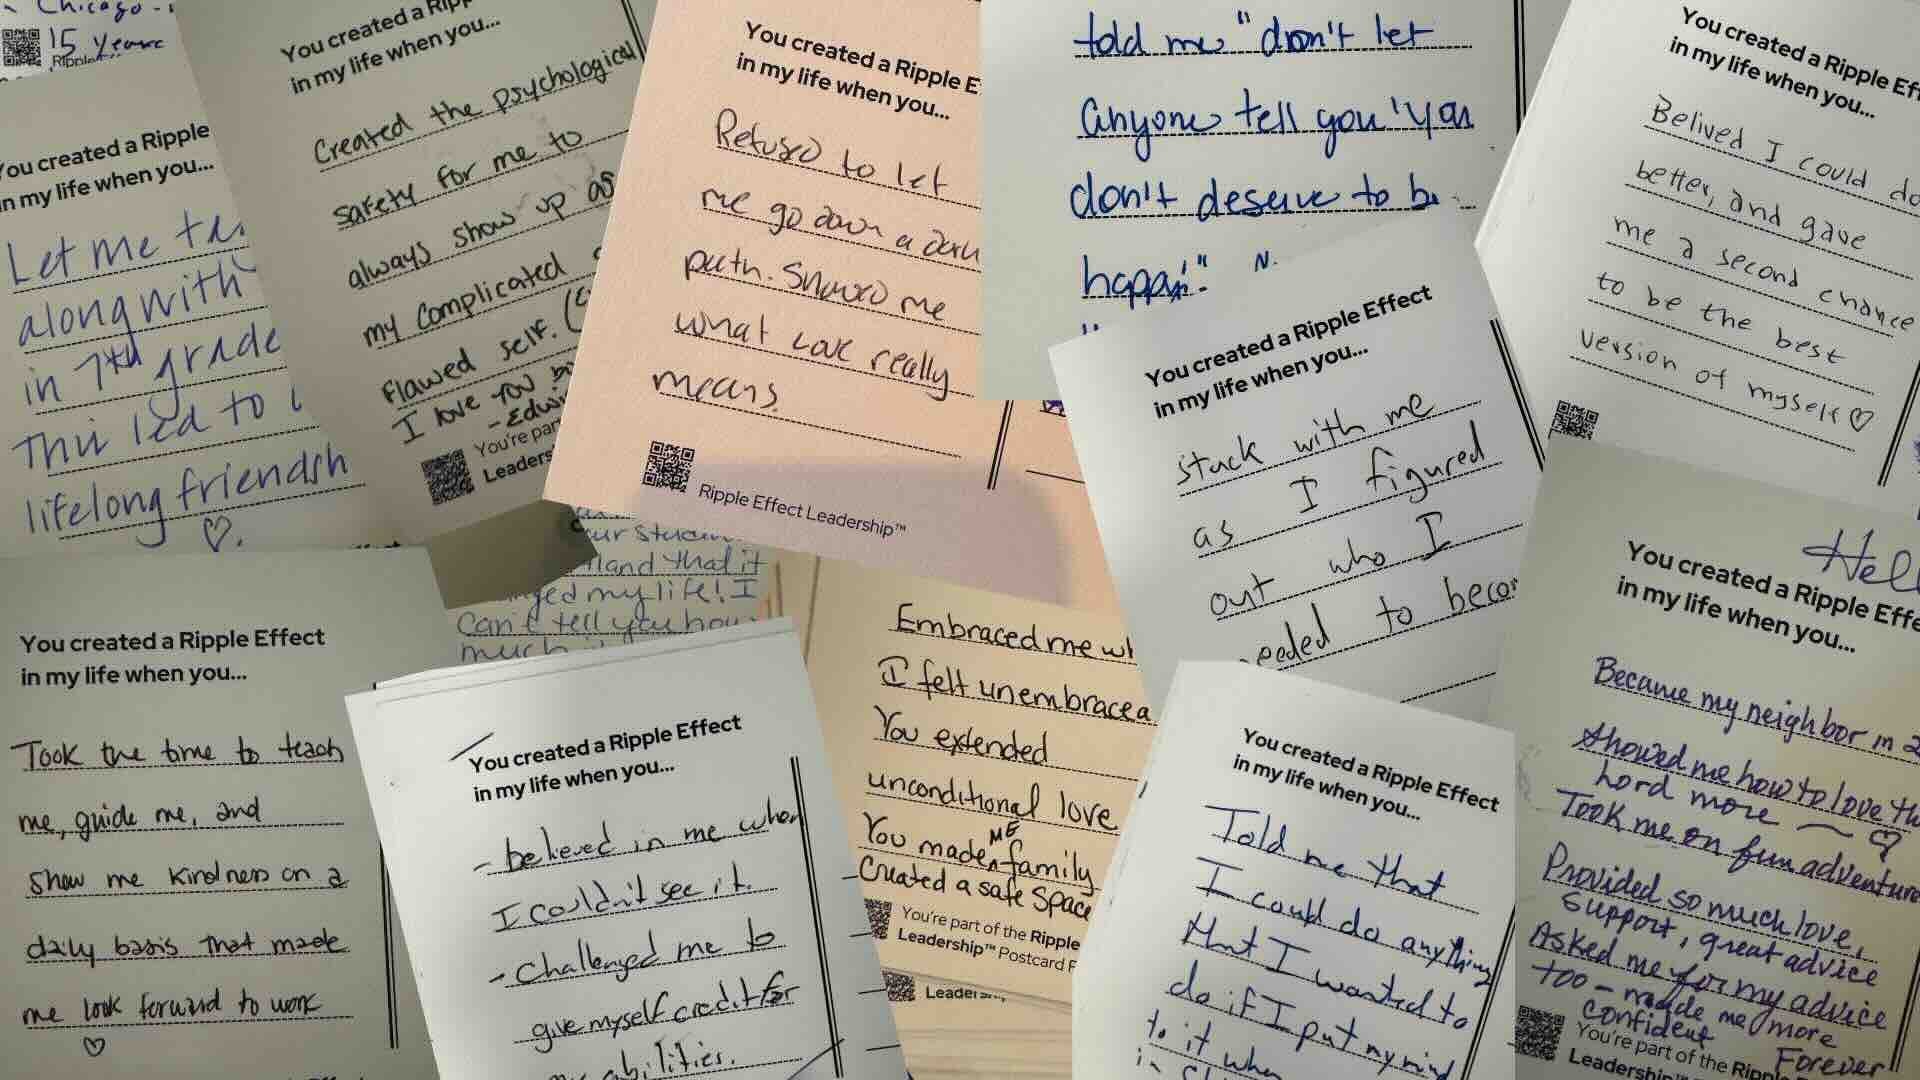 Chicago
15 years
Ripple
You created a Ripple
in my life when you...
Let me
along with
in 7th grade
This led to
lifelong
♡.
You created a
in my life when you...
Created the psychological
safety for me to
always show up as
my complicated
flawed self.
I love you
You're part
You created a Ripple
in my life when you...
Refused to let
me go down a dark
path. Showed me
what love really
means.
Ripple Effect Leadership™
told me "don't let
anyone tell you 'you
don't deserve to be
You created a Ripple
in my life when you...
Belived I could do
better, and gave
me a second chance
to be the best
version of myself ♡
You created a Ripple Effect
in my life when you...
stuck with me
as I figured
out who I
to
You created a Ripple Effect
in my life when you...
Took the time to teach
me, guide me, and
show me kindness on a
daily basis that made
me look forward to work
♡
that it
my life! I
can't tell you how
much
You created a Ripple Effect
in my life when you...
- believed in me when
I couldn't see it.
- Challenged me to
give myself credit for
abilities.
Embraced me
I felt
You extended
unconditional love
You made ME family
Created a safe space
You're part of the Ripple
Leadership™ Postcard
You created a Ripple Effect
in my life when you...
Told me that
I could do anything
that I wanted to
do if I put my mind
to it when
You created a Ripple
in my life when you...
Became my neighbor in
Showed me how to love the
Lord more ~ ♡
Took me on fun
Provided so much love,
support, great advice
Asked me for my advice
too - made me more
confident
Forever
You're part of the